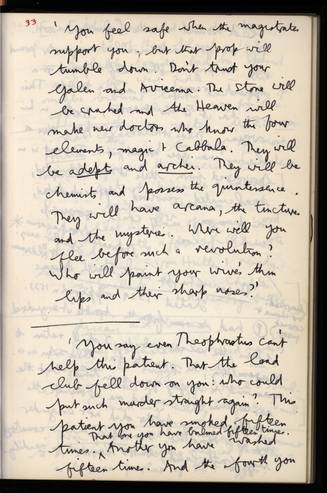 33
'You feel safe when the magistrates
support you, but that prop will
tumble down. Don't trust your
Galen and Avicenna. The stone will
be crushed and the Heaven will
make new doctors who know the four
elements, magic & Cabbala. They will
be adepts and archei. They will be
chemists and possess the quintessence.
They will have arcana, the tinctures
and the mysteries. Where will you
flee before such a revolution?
Who will paint your wives' thin
lips and their sharp noses?'
'You say even Theophrastus can't
help this patient. That the load
club fell down on you: who could
put such murder straight again? This
patient you have smoked fifteen
That one you have balmed fifteen time.
times. Another you have washed
fifteen times. And the fourth you